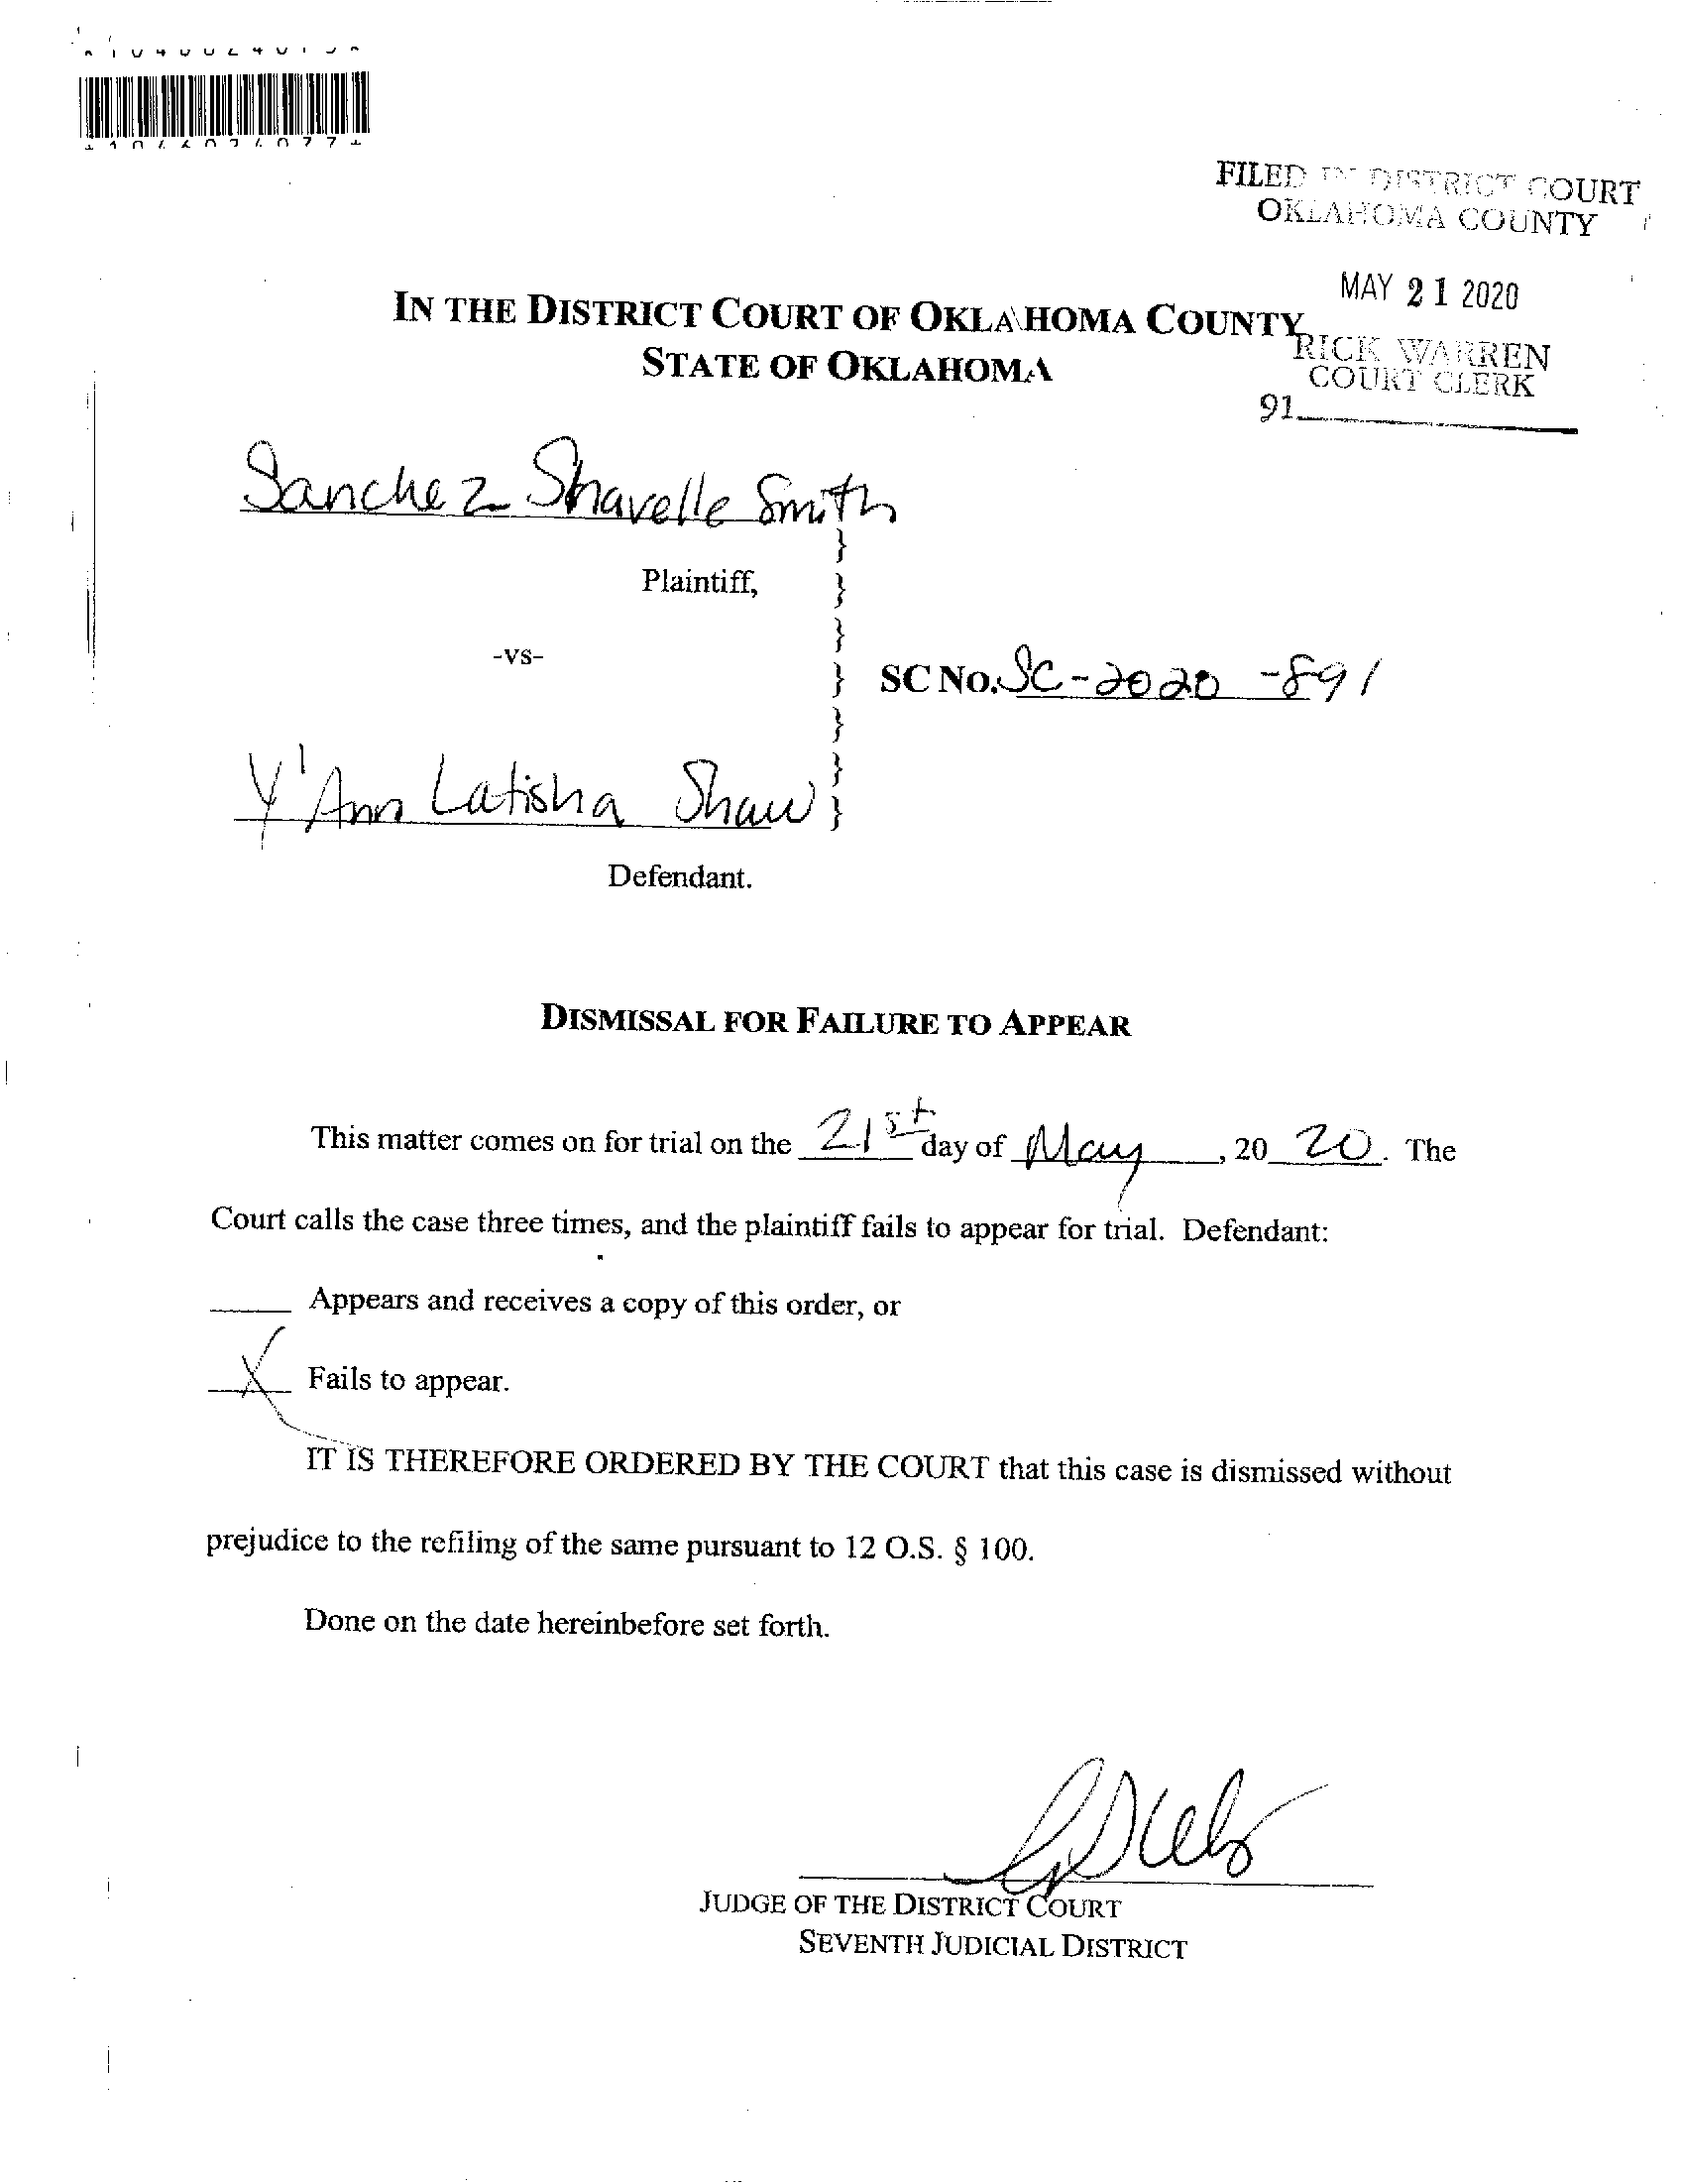 FILED IN DISTRICT COURT
OKLAHOMA COUNTY
MAY 21 2020
RICK WARREN
COURT CLERK
91
IN THE DISTRICT COURT OF OKLAHOMA COUNTY
STATE OF OKLAHOMA
Sanchez Shavelle Smith
}
Plaintiff, }
}
-vs-
} SC NO. SC-2020-891
}
}
Y'Ann Latisha Shaw }
Defendant.
DISMISSAL FOR FAILURE TO APPEAR
This matter comes on for trial on the 21st day of May, 2020. The
Court calls the case three times, and the plaintiff fails to appear for trial. Defendant:
Appears and receives a copy of this order, or
X Fails to appear.
IT IS THEREFORE ORDERED BY THE COURT that this case is dismissed without
prejudice to the refiling of the same pursuant to 12 O.S. § 100.
Done on the date hereinbefore set forth.
JUDGE OF THE DISTRICT COURT
SEVENTH JUDICIAL DISTRICT